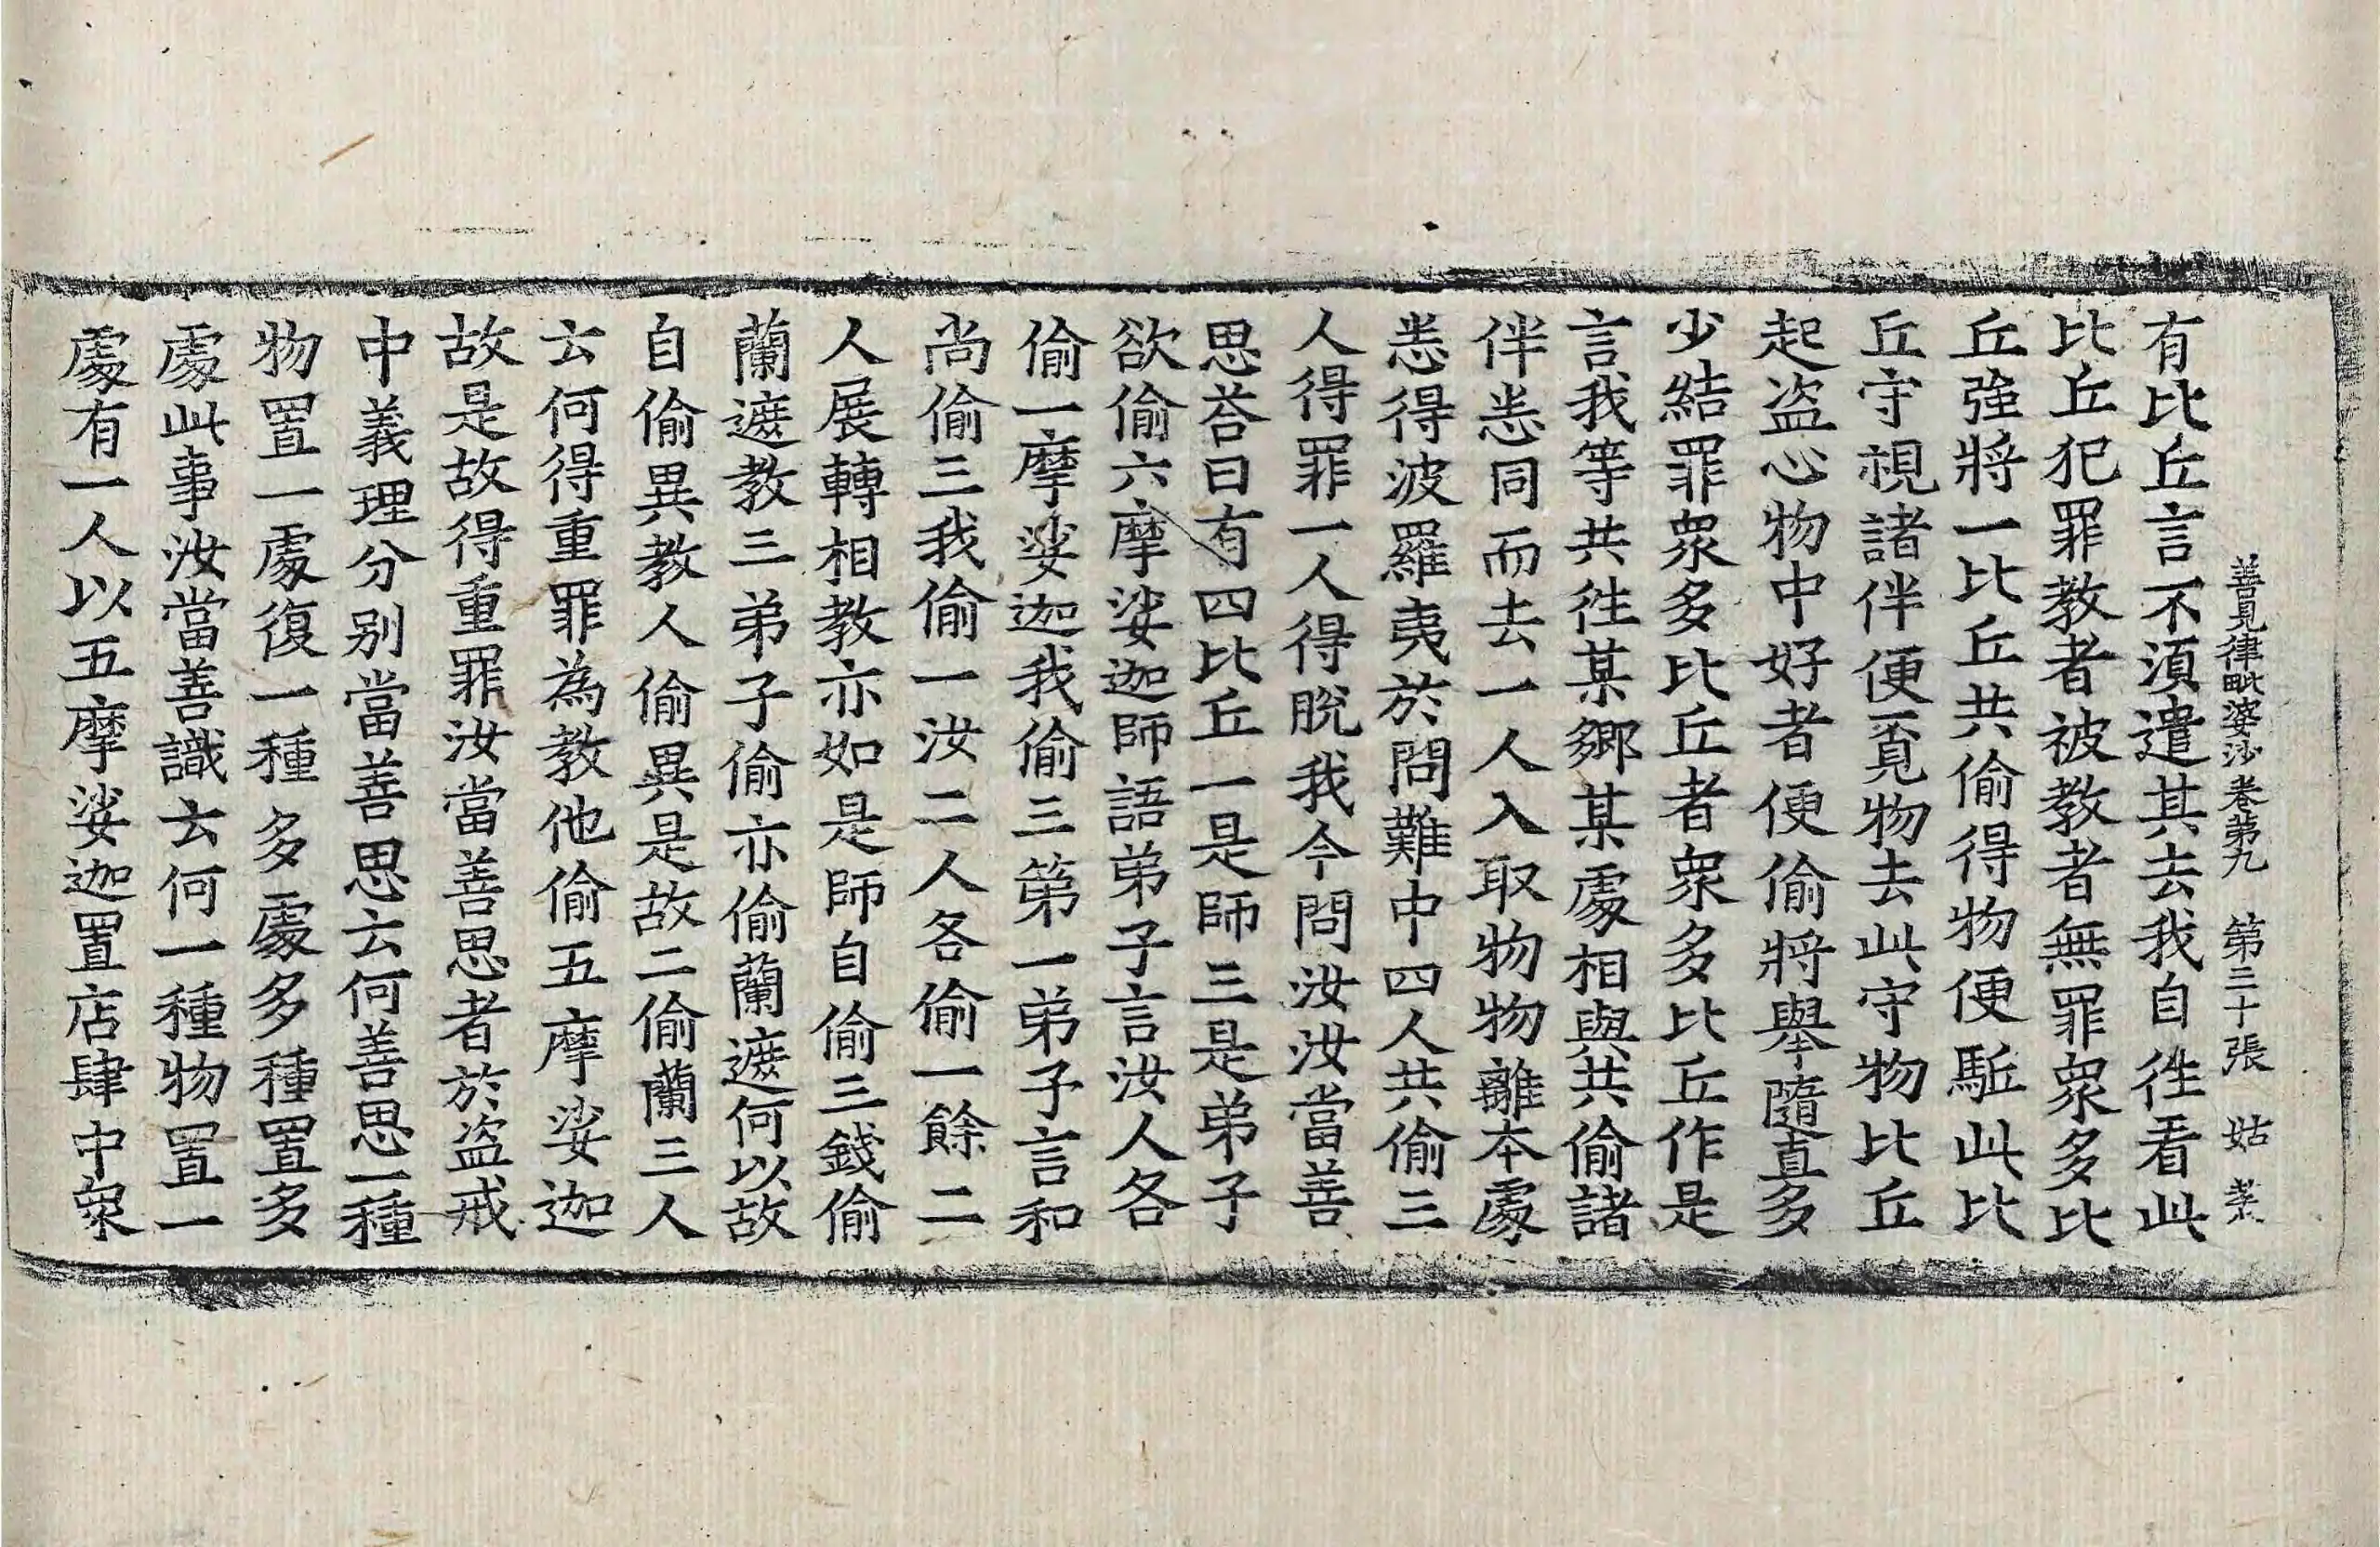 善見律毗婆沙卷第九 第三十張 姑
有比丘言不湏遣其去我自徃看此
比丘犯罪教者被教者無罪衆多比
丘強將一比丘共偷得物便駈此比
丘守視諸伴便覓物去此守物比丘
起盜心物中好者便偷將舉隨直多
少結罪衆多比丘者衆多比丘作是
言我等共徃某鄉某處相與共偷諸
伴悉同而去一人入取物物離本處
悉得波羅夷於問難中四人共偷三
人得罪一人得脫我今問汝汝當善
思荅曰有四比丘一是師三是弟子
欲偷六摩娑迦師語弟子言汝人各
偷一摩娑迦我偷三第一弟子言和
尚偷三我偷一汝二人各偷一餘二
人展轉相教亦如是師自偷三錢偷
蘭遮教三弟子偷亦偷蘭遮何以故
自偷異教人偷異是故二偷蘭三人
云何得重罪為教他偷五摩娑迦
故是故得重罪汝當善思者於盜戒
中義理分別當善思云何善思一種
物置一處復一種多處多種置多
處此事汝當善識云何一種物置一
處有一人以五摩娑迦置店肆中衆